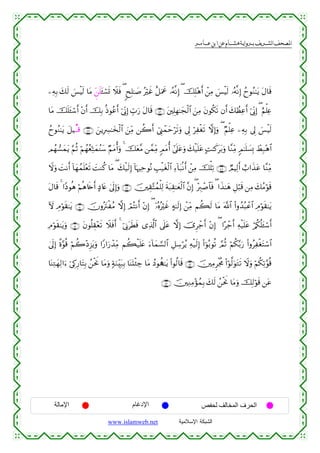 المصحف الشريف برواية هشام عن ابن عامر
قَالَ يَٰنُوحُ إِنَّهُۥ لَيْسَ مِنْ أَهْلِكَ ۖ إِنَّهُۥ عَمَلٌ غَيْرُ صَٰلِحٍ ۖ فَلَا تَسْـَٔلَنِّ مَا لَيْسَ لَكَ بِهِۦ
عِلْمٌ ۖ إِنِّىٓ أَعِظُكَ أَن تَكُونَ مِنَ ٱلْجَٰهِلِينَ ۝ قَالَ رَبِّ إِنِّىٓ أَعُوذُ بِكَ أَنْ أَسْـَٔلَكَ مَا
لَيْسَ لِى بِهِۦ عِلْمٌ ۖ وَإِلَّا تَغْفِرْ لِى وَتَرْحَمْنِىٓ أَكُن مِّنَ ٱلْخَٰسِرِينَ ۝ قِيلَ يَٰنُوحُ
ٱهْبِطْ بِسَلَٰمٍ مِّنَّا وَبَرَكَٰتٍ عَلَيْكَ وَعَلَىٰٓ أُمَمٍ مِّمَّن مَّعَكَ ۚ وَأُمَمٌ سَنُمَتِّعُهُمْ ثُمَّ يَمَسُّهُم
مِّنَّا عَذَابٌ أَلِيمٌ ۝ تِلْكَ مِنْ أَنۢبَآءِ ٱلْغَيْبِ نُوحِيهَآ إِلَيْكَ ۖ مَا كُنتَ تَعْلَمُهَآ أَنتَ وَلَا
قَوْمُكَ مِن قَبْلِ هَٰذَا ۖ فَٱصْبِرْ ۖ إِنَّ ٱلْعَٰقِبَةَ لِلْمُتَّقِينَ ۝ وَإِلَىٰ عَادٍ أَخَاهُمْ هُودًا ۚ قَالَ
يَٰقَوْمِ ٱعْبُدُوا۟ ٱللَّهَ مَا لَكُم مِّنْ إِلَٰهٍ غَيْرُهُۥٓ ۖ إِنْ أَنتُمْ إِلَّا مُفْتَرُونَ ۝ يَٰقَوْمِ لَآ
أَسْـَٔلُكُمْ عَلَيْهِ أَجْرًا ۖ إِنْ أَجْرِىَ إِلَّا عَلَى ٱلَّذِى فَطَرَنِىٓ ۚ أَفَلَا تَعْقِلُونَ ۝ وَيَٰقَوْمِ
ٱسْتَغْفِرُوا۟ رَبَّكُمْ ثُمَّ تُوبُوٓا۟ إِلَيْهِ يُرْسِلِ ٱلسَّمَآءَ عَلَيْكُم مِّدْرَارًا وَيَزِدْكُمْ قُوَّةً إِلَىٰ
قُوَّتِكُمْ وَلَا تَتَوَلَّوْا۟ مُجْرِمِينَ ۝ قَالُوا۟ يَٰهُودُ مَا جِئْتَنَا بِبَيِّنَةٍ وَمَا نَحْنُ بِتَارِكِىٓ ءَالِهَتِنَا
عَن قَوْلِكَ وَمَا نَحْنُ لَكَ بِمُؤْمِنِينَ ۝
الحرف المخالف لحفص الإدغام الإمالة
الشبكة الإسلامية www.islamweb.net